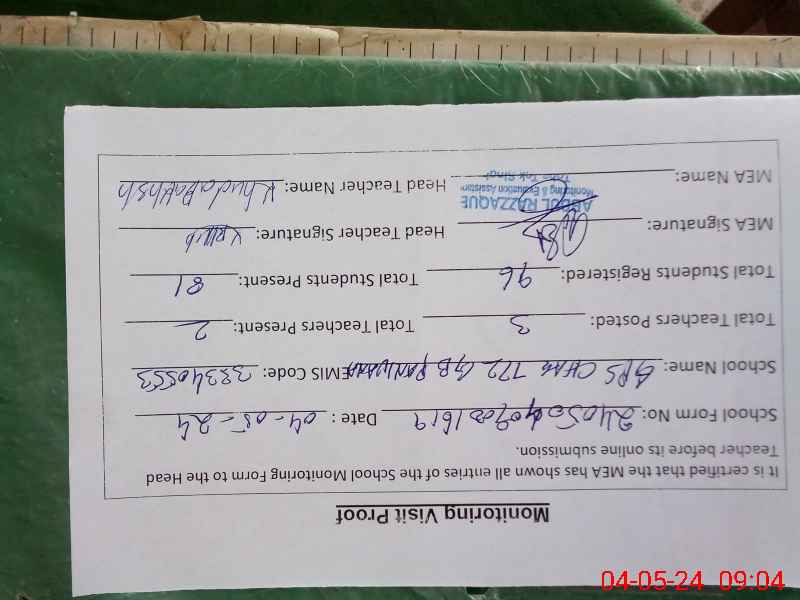 Monitoring Visit Proof
It is certified that the MEA has shown all entries of the School Monitoring Form to the Head
Teacher before its online submission.
School Form No: Date : 04-05-24
School Name: GPS CHAK 722 GB EMIS Code: 38340553
Total Teachers Posted: 3 Total Teachers Present: 2
Total Students Registered: 96 Total Students Present: 81
MEA Signature: Head Teacher Signature:
ABDUL RAZZAQUE
Monitoring & Evaluation Assistant
Toba Tek Singh
MEA Name: Head Teacher Name: Khuda Bakhsh
04-05-24 09:04